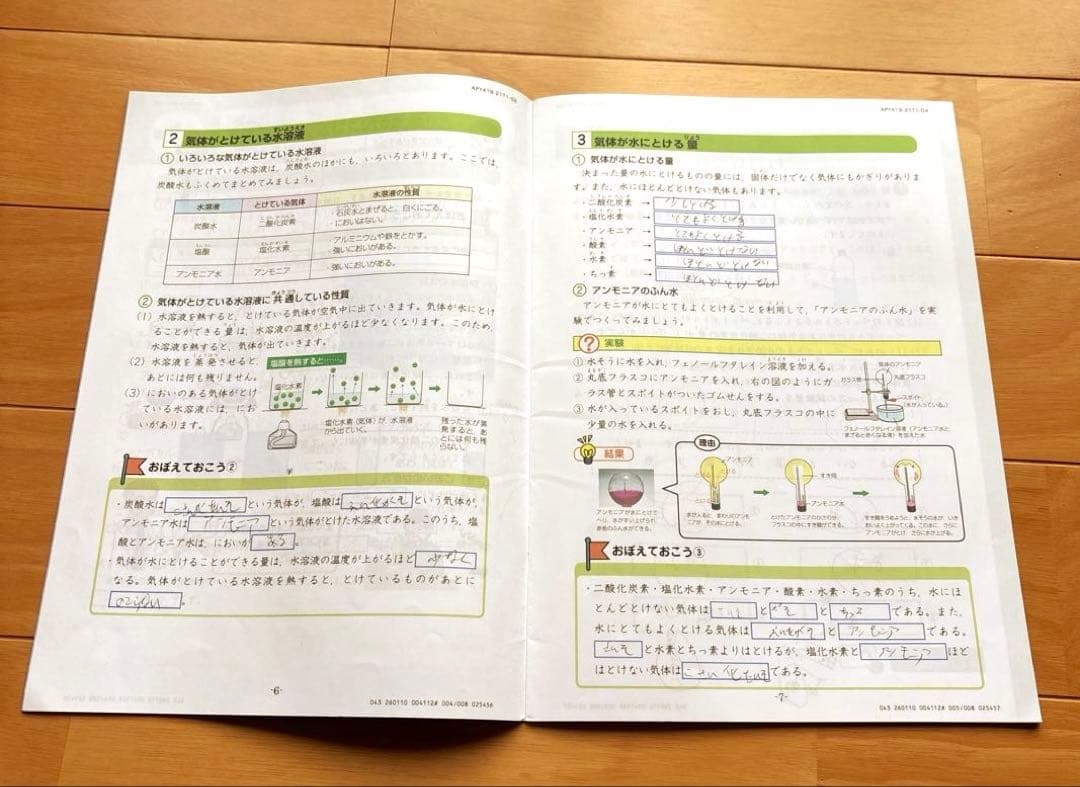 APY419-2171-03
2 気体がとけている水溶液
① いろいろな気体がとけている水溶液
気体がとけている水溶液は、炭酸水のほかにも、いろいろとあります。ここでは、
炭酸水もふくめてまとめてみましょう。
水溶液 とけている気体 水溶液の性質
炭酸水 二酸化炭素 ・石灰水とまぜると、白くにごる。
・においはない。
塩酸 塩化水素 ・アルミニウムや鉄をとかす。
・強いにおいがある。
アンモニア水 アンモニア ・強いにおいがある。
② 気体がとけている水溶液に共通している性質
(1) 水溶液を熱すると、とけている気体が空気中に出ていきます。気体が水にとけ
ることができる量は、水溶液の温度が上がるほど少なくなります。このため、
水溶液を熱すると、気体が出ていきます。
(2) 水溶液を蒸発させると、
あとには何も残りません。
(3) においのある気体がとけ
ている水溶液には、にお
いがあります。
塩酸を熱すると……
塩化水素
塩化水素(気体)が、水溶液
から出ていく。
残った水が蒸
発すると、あ
とには何も残
らない。
おぼえておこう②
・炭酸水は
という気体が、塩酸は
という気体が、
アンモニア水は アンモニア という気体がとけた水溶液である。このうち、塩
酸とアンモニア水は、においが ある。
・気体が水にとけることができる量は、水溶液の温度が上がるほど 少なく
なる。気体がとけている水溶液を熱すると、とけているものがあとに
。
-6-
043 260110 004112# 004/008 025456
APY419-2171-04
3 気体が水にとける量
① 気体が水にとける量
決まった量の水にとけるものの量には、固体だけでなく気体にもかぎりがありま
す。また、水にほとんどとけない気体もあります。
・二酸化炭素 → 少しとける
・塩化水素 → とてもよくとける
・アンモニア → とてもよくとける
・酸素 → ほとんどとけない
・水素 → ほとんどとけない
・ちっ素 → ほとんどとけない
② アンモニアのふん水
アンモニアが水にとてもよくとけることを利用して、「アンモニアのふん水」を実
験でつくってみましょう。
実験
① 水そうに水を入れ、フェノールフタレイン溶液を加える。
② 丸底フラスコにアンモニアを入れ、右の図のようにガ
ラス管とスポイトがついたゴムせんをする。
③ 水が入っているスポイトをおし、丸底フラスコの中に
少量の水を入れる。
気体のアンモニア
丸底フラスコ
ガラス管
スポイト
(水が入っている。)
フェノールフタレイン溶液(アンモニア水と
まぜると赤くなる液)を加えた水
結果
アンモニアが水にとけて
へり、水がすい上げられ、
赤色のふん水ができる。
理由
アンモニア
とける
水が入ると、まわりのアンモニ
アが、その水にとける。
すき間
アンモニア水
とけたアンモニアのかさの分、
フラスコの中にすき間ができる。
すき間をうめようと、水そうの水が、いき
おいよく上がってくる。この水に、さらに
アンモニアがとけ、さらに水が上がる。
おぼえておこう③
・二酸化炭素・塩化水素・アンモニア・酸素・水素・ちっ素のうち、水にほ
とんどとけない気体は
と
と ちっそ である。また、
水にとてもよくとける気体は
と アンモニア である。
と水素とちっ素よりはとけるが、塩化水素と アンモニア ほど
はとけない気体は
である。
-7-
043 260110 004112# 005/008 025457